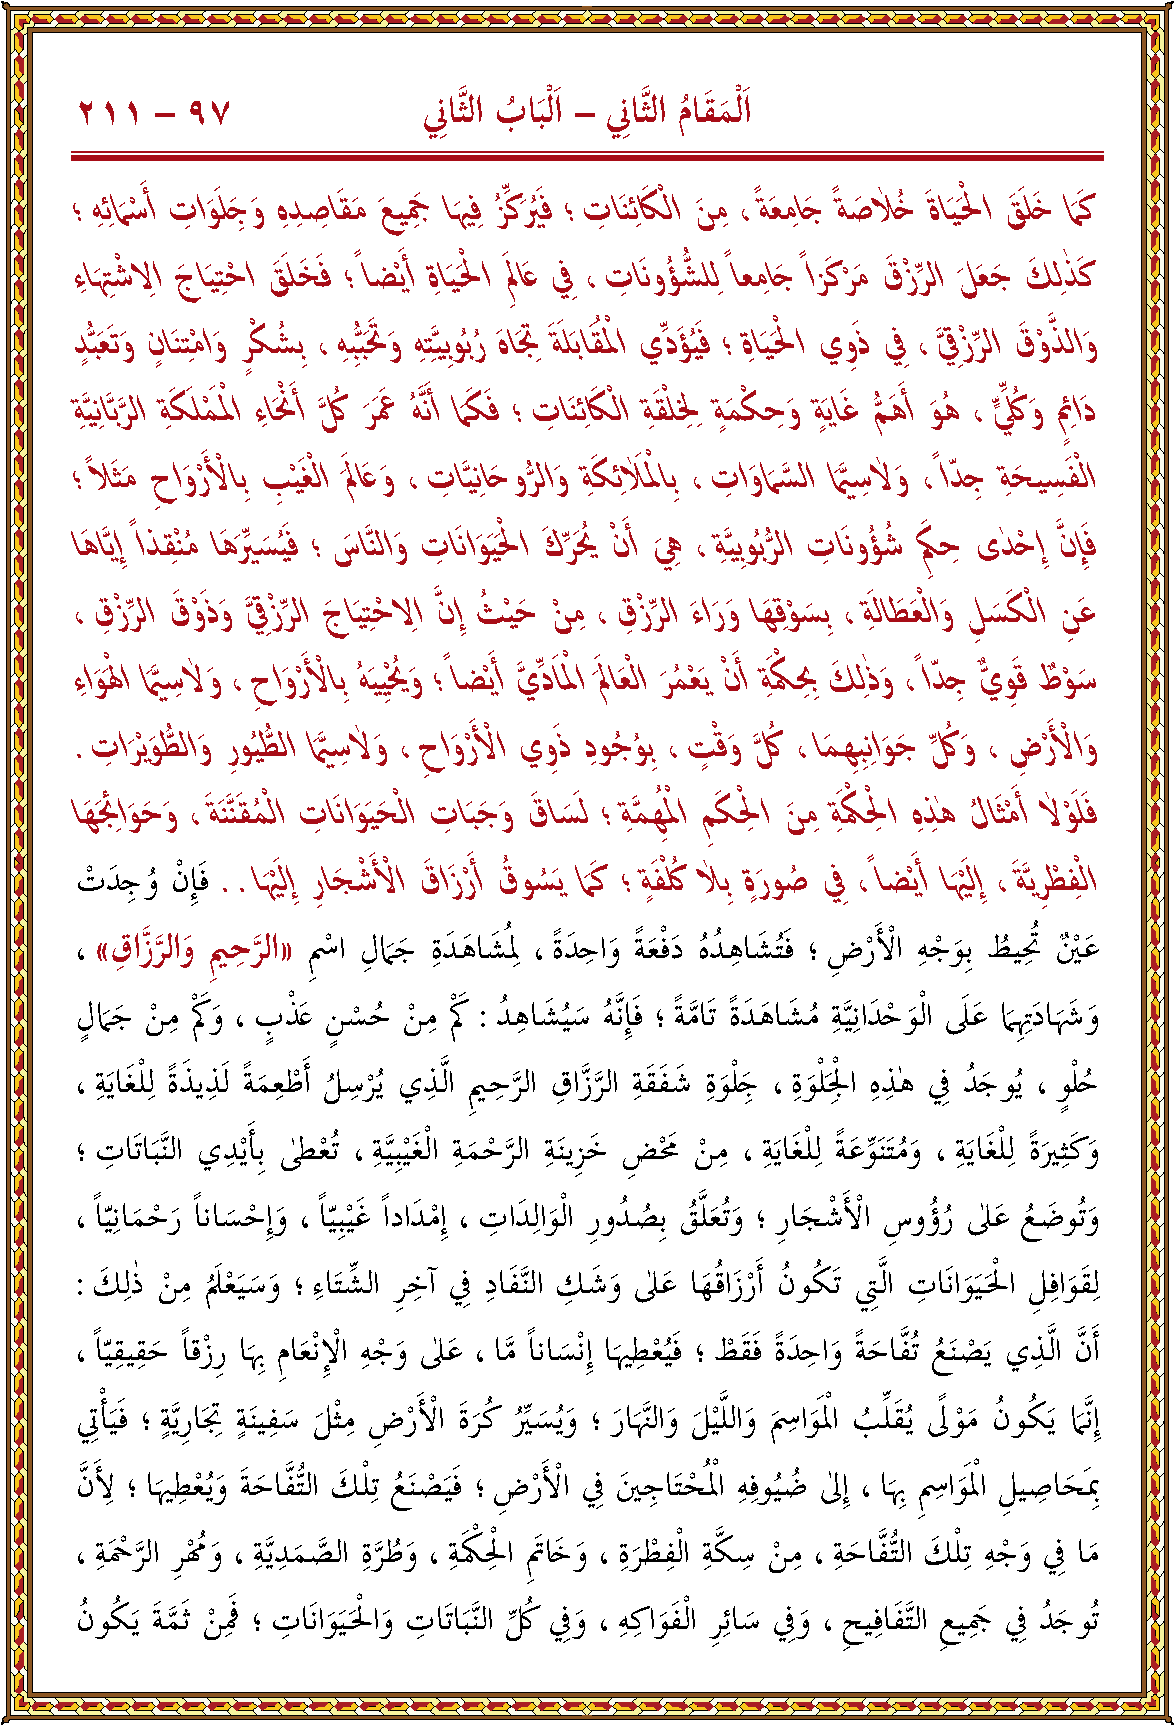 اَلْمَقَامُ الثَّانِي – اَلْبَابُ الثَّانِي ٩٧ – ٢١١
كَمَا خَلَقَ الْحَيَاةَ خُلاٰصَةً جَامِعَةً ، مِنَ الْكَائِنَاتِ ؛ فَيُرَكِّزُ فِيهَا جَمِيعَ مَقَاصِدِهِ وَجِلَوَاتِ أَسْمَائِهِ ؛
كَذٰلِكَ جَعَلَ الرِّزْقَ مَرْكَزاً جَامِعاً لِلشُّؤُونَاتِ ، فِي عَالَمِ الْحَيَاةِ أَيْضاً ؛ فَخَلَقَ احْتِيَاجَ الاِشْتِهَاءِ
وَالذَّوْقَ الرِّزْقِيَّ ، فِي ذَوِي الْحَيَاةِ ؛ فَيُؤَدِّي الْمُقَابَلَةَ تِجَاهَ رُبُوبِيَّتِهِ وَتَحَبُّبِهِ ، بِشُكْرٍ وَامْتِنَانٍ وَتَعَبُّدٍ
دَائِمٍ وَكُلِّيٍّ ، هُوَ أَهَمُّ غَايَةٍ وَحِكْمَةٍ لِخِلْقَةِ الْكَائِنَاتِ ؛ فَكَمَا أَنَّهُ عَمَرَ كُلَّ أَنْحَاءِ الْمَمْلَكَةِ الرَّبَّانِيَّةِ
الْفَسِيحَةِ جِدّاً ، وَلاٰسِيَّمَا السَّمَاوَاتِ ، بِالْمَلاٰئِكَةِ وَالرُّوحَانِيَّاتِ ، وَعَالَمَ الْغَيْبِ بِالْأَرْوَاحِ مَثَلاً ؛
فَإِنَّ إِحْدٰى حِكَمِ شُؤُونَاتِ الرُّبُوبِيَّةِ ، هِيَ أَنْ يُحَرِّكَ الْحَيَوَانَاتِ وَالنَّاسَ ؛ فَيُسَيِّرَهَا مُنْقِذاً إِيَّاهَا
عَنِ الْكَسَلِ وَالْعَطَالَةِ ، بِسَوْقِهَا وَرَاءَ الرِّزْقِ ، مِنْ حَيْثُ إِنَّ الاِحْتِيَاجَ الرِّزْقِيَّ وَذَوْقَ الرِّزْقِ ،
سَوْطٌ قَوِيٌّ جِدّاً ، وَذٰلِكَ بِحِكْمَةِ أَنْ يَعْمُرَ الْعَالَمَ الْمَادِّيَّ أَيْضاً ؛ وَيُحْيِيَهُ بِالْأَرْوَاحِ ، وَلاٰسِيَّمَا الْهَوَاءِ
وَالْأَرْضِ ، وَكُلِّ جَوَانِبِهِمَا ، كُلَّ وَقْتٍ ، بِوُجُودِ ذَوِي الْأَرْوَاحِ ، وَلاٰسِيَّمَا الطُّيُورِ وَالطُّوَيْرَاتِ .
فَلَوْلاٰ أَمْثَالُ هٰذِهِ الْحِكْمَةِ مِنَ الْحِكَمِ الْمُهِمَّةِ ؛ لَسَاقَ وَجَبَاتِ الْحَيَوَانَاتِ الْمُقَنَّنَةَ ، وَحَوَائِجَهَا
الْفِطْرِيَّةَ ، إِلَيْهَا أَيْضاً ، فِي صُورَةٍ بِلاٰ كُلْفَةٍ ؛ كَمَا يَسُوقُ أَرْزَاقَ الْأَشْجَارِ إِلَيْهَا . . فَإِنْ وُجِدَتْ
عَيْنٌ تُحِيطُ بِوَجْهِ الْأَرْضِ ؛ فَتُشَاهِدُهُ دَفْعَةً وَاحِدَةً ، لِمُشَاهَدَةِ جَمَالِ اسْمِ «الرَّحِيمِ وَالرَّزَّاقِ» ،
وَشَهَادَتِهِمَا عَلَى الْوَحْدَانِيَّةِ مُشَاهَدَةً تَامَّةً ؛ فَإِنَّهُ سَيُشَاهِدُ : كَمْ مِنْ حُسْنٍ عَذْبٍ ، وَكَمْ مِنْ جَمَالٍ
حُلْوٍ ، يُوجَدُ فِي هٰذِهِ الْجِلْوَةِ ، جِلْوَةِ شَفَقَةِ الرَّزَّاقِ الرَّحِيمِ الَّذِي يُرْسِلُ أَطْعِمَةً لَذِيذَةً لِلْغَايَةِ ،
وَكَثِيرَةً لِلْغَايَةِ ، وَمُتَنَوِّعَةً لِلْغَايَةِ ، مِنْ مَحْضِ خَزِينَةِ الرَّحْمَةِ الْغَيْبِيَّةِ ، تُعْطٰى بِأَيْدِي النَّبَاتَاتِ ؛
وَتُوضَعُ عَلٰى رُؤُوسِ الْأَشْجَارِ ؛ وَتُعَلَّقُ بِصُدُورِ الْوَالِدَاتِ ، إِمْدَاداً غَيْبِيّاً ، وَإِحْسَاناً رَحْمَانِيّاً ،
لِقَوَافِلِ الْحَيَوَانَاتِ الَّتِي تَكُونُ أَرْزَاقُهَا عَلٰى وَشَكِ النَّفَادِ فِي آخِرِ الشِّتَاءِ ؛ وَسَيَعْلَمُ مِنْ ذٰلِكَ :
أَنَّ الَّذِي يَصْنَعُ تُفَّاحَةً وَاحِدَةً فَقَطْ ؛ فَيُعْطِيهَا إِنْسَاناً مَّا ، عَلٰى وَجْهِ الْإِنْعَامِ بِهَا رِزْقاً حَقِيقِيّاً ،
إِنَّمَا يَكُونُ مَوْلًى يُقَلِّبُ الْمَوَاسِمَ وَاللَّيْلَ وَالنَّهَارَ ؛ وَيُسَيِّرُ كُرَةَ الْأَرْضِ مِثْلَ سَفِينَةٍ تِجَارِيَّةٍ ؛ فَيَأْتِي
بِمَحَاصِيلِ الْمَوَاسِمِ بِهَا ، إِلٰى ضُيُوفِهِ الْمُحْتَاجِينَ فِي الْأَرْضِ ؛ فَيَصْنَعُ تِلْكَ التُّفَّاحَةَ وَيُعْطِيهَا ؛ لِأَنَّ
مَا فِي وَجْهِ تِلْكَ التُّفَّاحَةِ ، مِنْ سِكَّةِ الْفِطْرَةِ ، وَخَاتَمِ الْحِكْمَةِ ، وَطُرَّةِ الصَّمَدِيَّةِ ، وَمُهْرِ الرَّحْمَةِ ،
تُوجَدُ فِي جَمِيعِ التَّفَافِيحِ ، وَفِي سَائِرِ الْفَوَاكِهِ ، وَفِي كُلِّ النَّبَاتَاتِ وَالْحَيَوَانَاتِ ؛ فَمِنْ ثَمَّةَ يَكُونُ